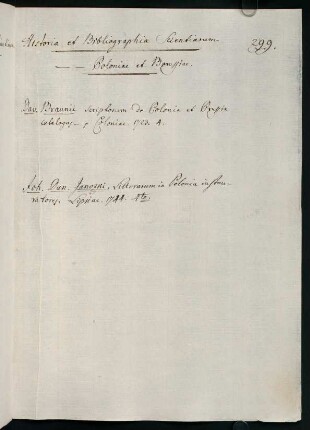 Historia et Bibliographia Scientiarum
299.
Poloniae et Borussiae.
Dav. Braunii scriptorum de Polonia et Prussia
catalogus. Coloniae. 1723. 4.
Joh. Dan. Janozki, Litterarum in Polonia instau-
ratores. Lipsiae. 1744. 4to